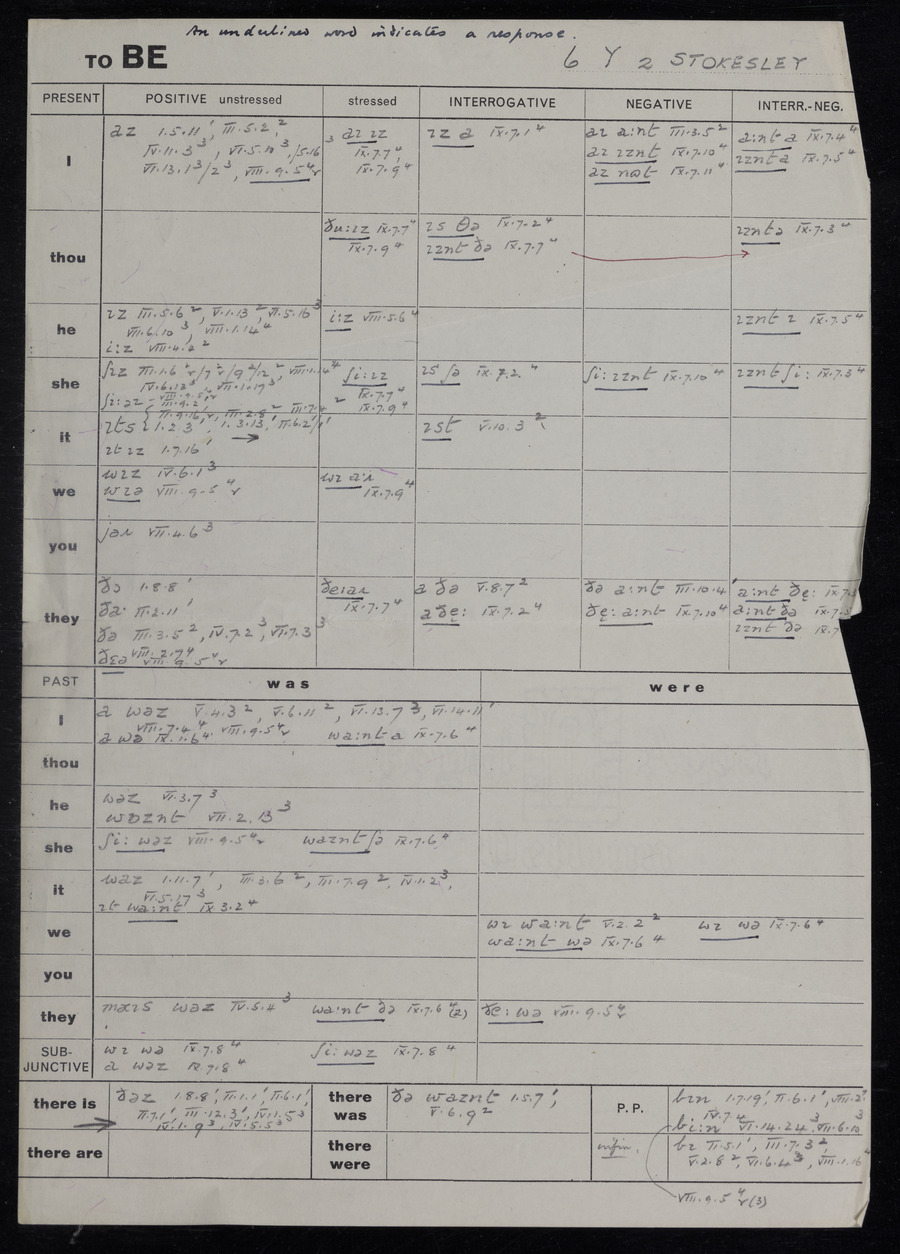 An underlined word indicates a response.
TO BE
6 Y 2 STOKESLEY
PRESENT POSITIVE unstressed stressed INTERROGATIVE NEGATIVE INTERR.-NEG.
I
az I.5.11¹, III.5.2,²
IV.11.3³, VI.5.10³, /5.16
VI.13.1³/2³, VIII.9.5⁴r
³ aɪ ɪz
IX.7.7⁴,
IX.7.9⁴
ɪz a IX.7.1⁴
aɪ a:nt III.3.5²
aɪ ɪznt IX.7.10⁴
az nɒt IX.7.11⁴
a:nt a IX.7.4⁴
ɪznta IX.7.5⁴
thou
ðu:ɪz IX.7.7⁴
IX.7.9⁴
ɪs θə IX.7.2⁴
ɪznt ðə IX.7.7⁴
ɪzntə IX.7.3⁴
he
ɪz III.5.6², V.1.13², VI.5.16³
VII.6.10³, VIII.1.14⁴
i:z VIII.4.2²
i:z VIII.5.6⁴
ɪs ʃə IX.7.2⁴
ɪznt ɪ IX.7.5⁴
she
ʃi:ɪz
IX.7.7⁴
IX.7.9⁴
ʃi: ɪznt IX.7.10⁴
ɪznt ʃi: IX.7.3⁴
it
ɪt ɪz I.7.16¹
ɪst V.10.3²
we
wɪz IV.6.1³
wɪə VIII.9.5⁴r
wɪ a:ɪ
IX.7.9⁴
you
jaɪ VII.4.6³
they
ðə I.8.8¹
ða: II.2.11¹
ðə III.3.5², IV.7.2³, VI.7.3³
ðɛə VIII.2.7⁴
VIII.9.5⁴r
ðe:aɪ
IX.7.7⁴
a ðə V.8.7²
a ðe: IX.7.2⁴
ðə a:nt III.10.4¹
ðe: a:nt IX.7.10⁴
a:nt ðe: IX.7.3
a:nt ðə IX.7.5
ɪznt ðə IX.7
PAST was were
I
a waz V.4.3², V.6.11², VI.13.7³, VI.14.11¹
VIII.7.4⁴ VIII.9.5⁴r
a wə IX.1.6⁴ wa:nt a IX.7.6⁴
thou
he
waz VI.3.7³
wɒznt VII.2.13³
she
ʃi: waz VIII.9.5⁴r waznt ʃə IX.7.6⁴
it
waz I.11.7¹, III.3.6², III.7.9², IV.1.2³,
VI.5.17³
ɪt wa:nt IX.3.2⁴
we
wɪ wa:nt V.2.2² wɪ wə IX.7.6⁴
wa:nt wə IX.7.6⁴
you
they
maɪs waz IV.5.4³ wa:nt ðə IX.7.6⁴(2) ðe: wə VIII.9.5⁴r
SUB-
JUNCTIVE
wɪ wə IX.7.8⁴ ʃi: waz IX.7.8⁴
a waz IX.7.8⁴
there is
ðəz I.8.8¹, II.1.1¹, II.6.1¹,
II.7.1¹, III.12.3¹, IV.1.5³
IV.1.9³, IV.5.5³
there
was
ðə waznt I.5.7¹,
V.6.9²
P.P.
bɪn I.7.19¹, II.6.1¹, VIII.2¹
IX.7.4
bi:n VI.14.24³, VII.6.10³
there are
there
were
infin.
bɪ II.5.1¹, III.7.3²,
V.2.8², VI.6.4³, VIII.1.16⁴
VIII.9.5⁴r(3)